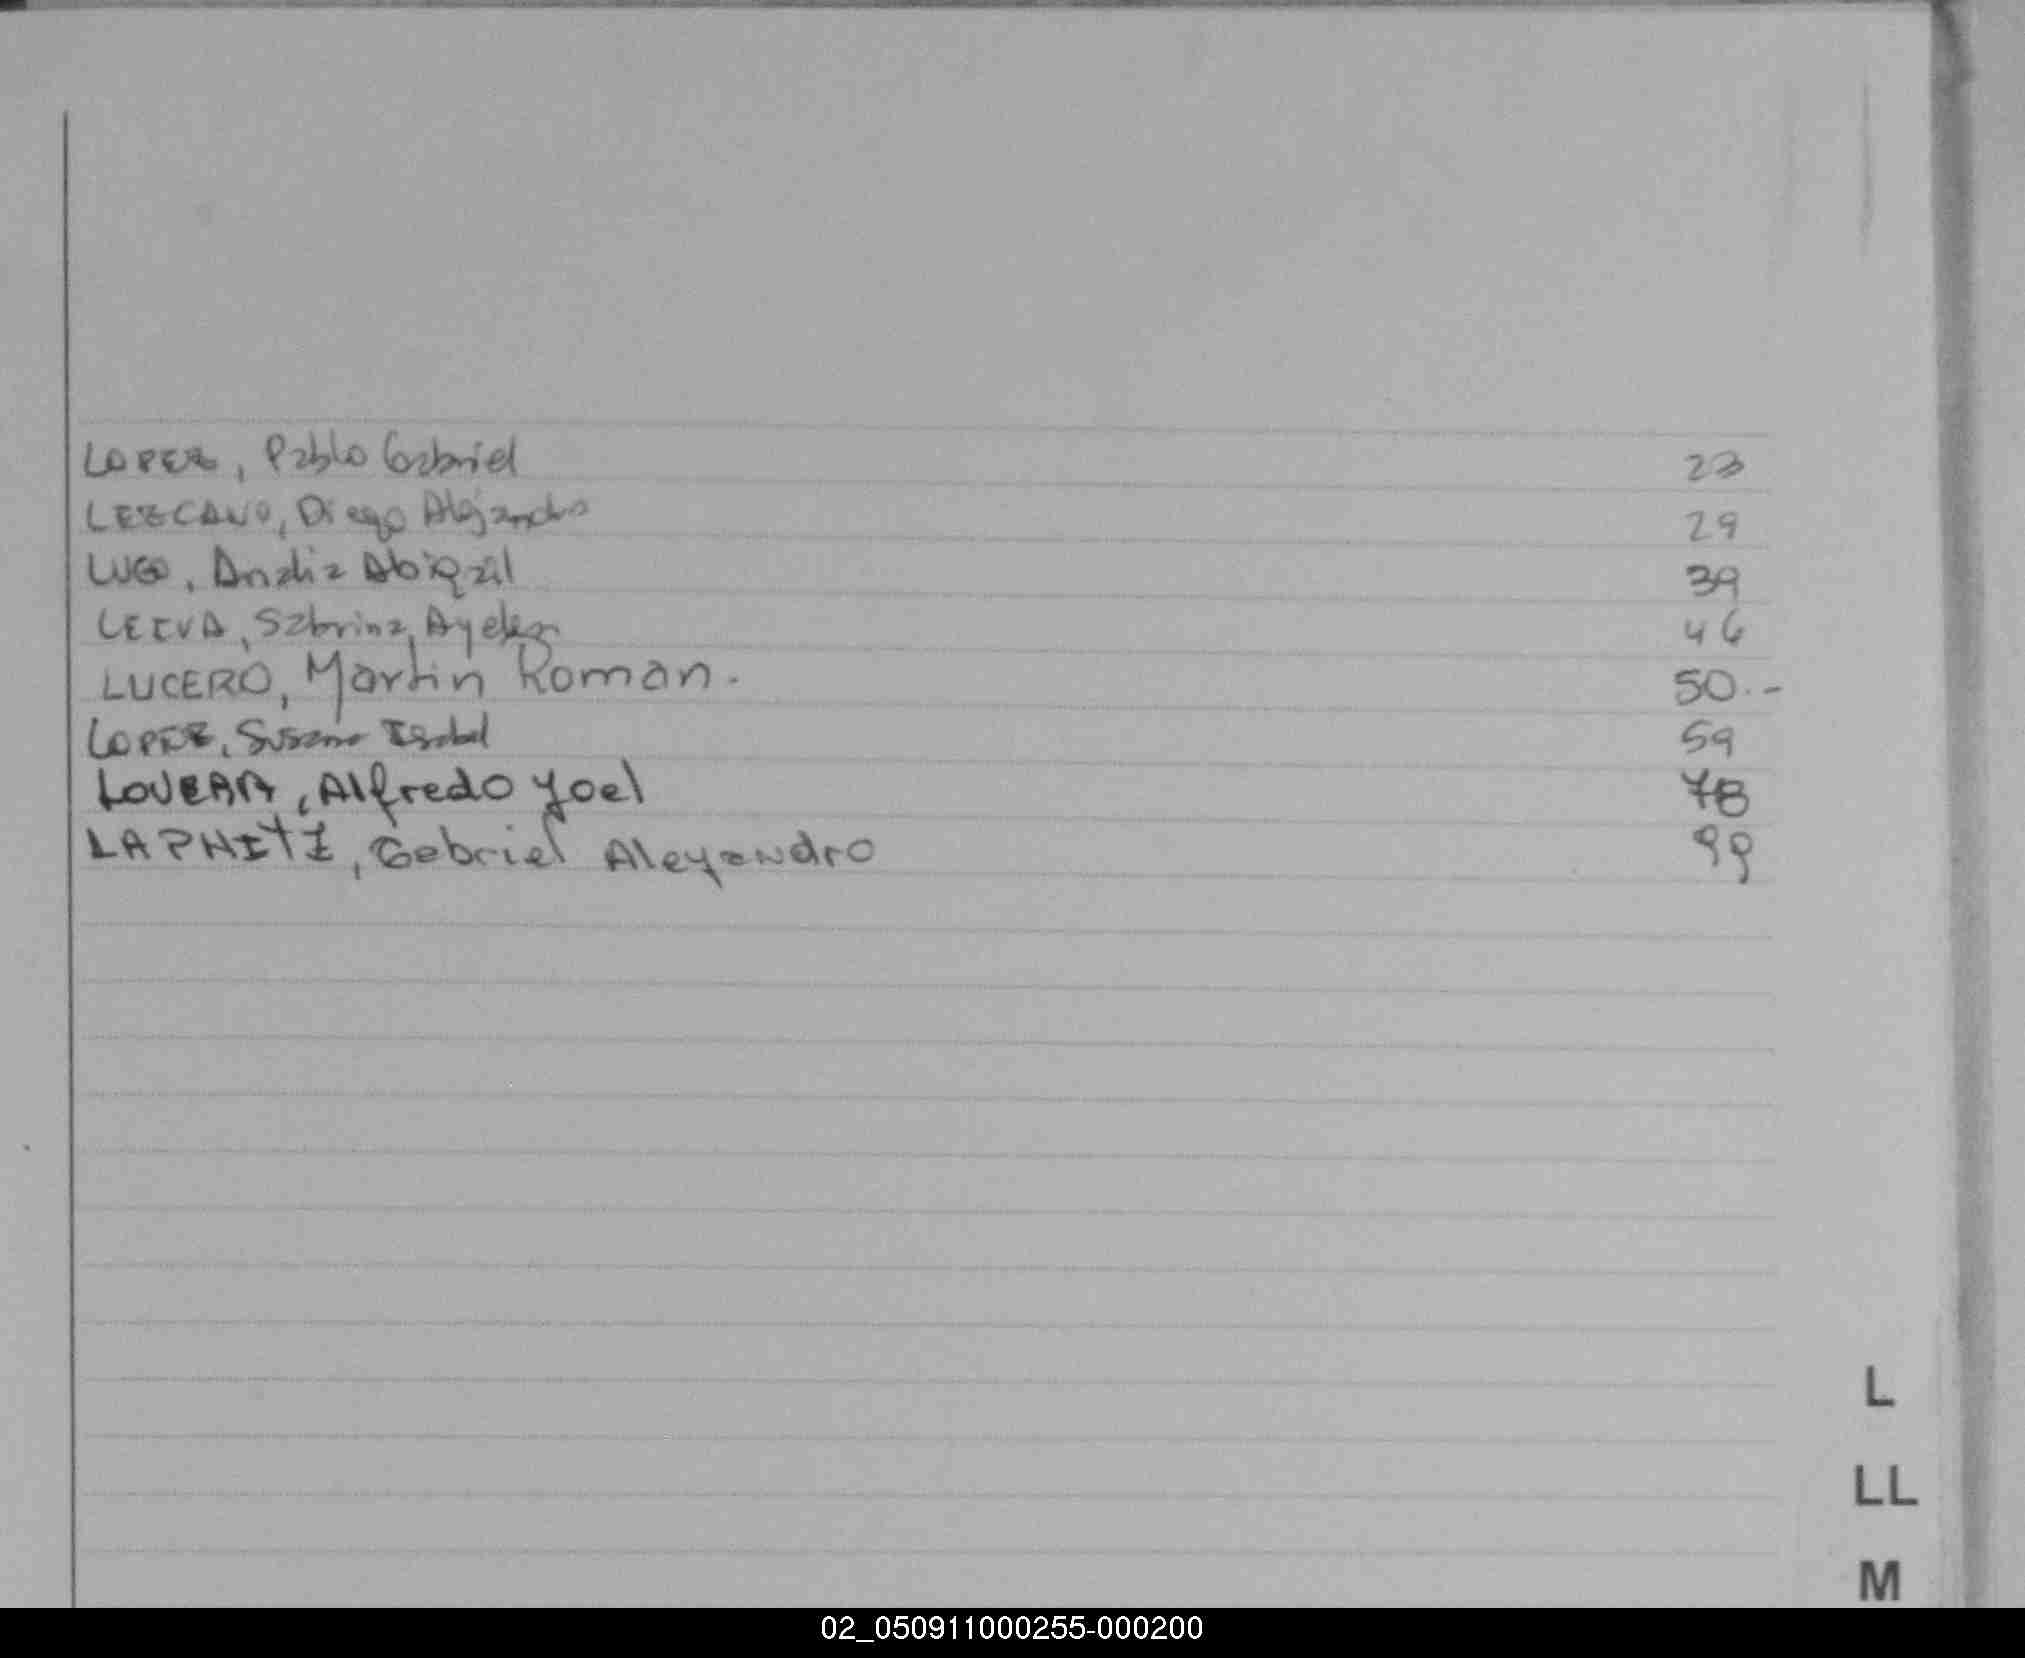 LOPEZ, Pablo Gabriel 23
LEZCANO, Diego Alejandro 29
LUGO, Analia Abigail 39
LEIVA, Sabrina, Ayelen 46
LUCERO, Martin Roman. 50.-
LOPEZ, Susana Isabel 59
LOVERA, Alfredo Yoel 78
LAPHITZ, Gabriel Aleyandro 99
L
LL
M
02_050911000255-000200